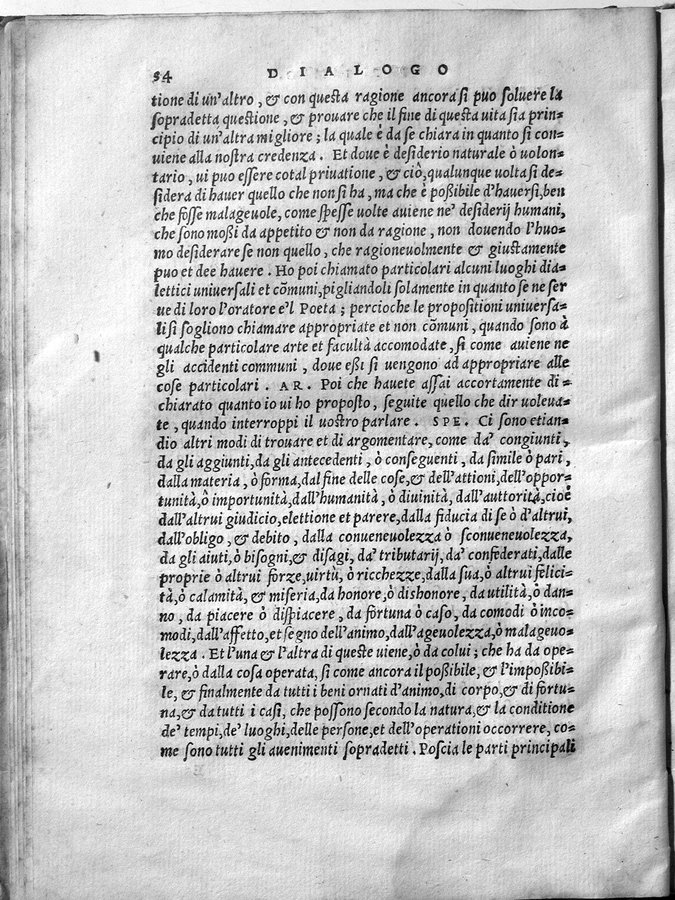 54 DIALOGO
tione di un'altro, & con questa ragione ancora si puo soluere la
sopradetta questione, & prouare che il fine di questa uita sia prin-
cipio di un'altra migliore; la quale è da se chiara in quanto si con-
uiene alla nostra credenza. Et doue è desiderio naturale ò uolon-
tario, ui puo essere cotal priuatione, & ciò, qualunque uolta si de-
sidera di hauer quello che non si ha, ma che è poßibile d'hauersi, ben
che fosse malageuole, come spesse uolte auiene ne' desiderij humani,
che sono moßi da appetito & non da ragione, non douendo l'huo-
mo desiderare se non quello, che ragioneuolmente & giustamente
puo et dee hauere. Ho poi chiamato particolari alcuni luoghi dia-
lettici uniuersali et cõmuni, pigliandoli solamente in quanto se ne ser
ue di loro l'oratore e'l Poeta; percioche le propositioni uniuersa-
li si sogliono chiamare appropriate et non cõmuni, quando sono à
qualche particolare arte et facultà accomodate, si come auiene ne
gli accidenti communi, doue eßi si uengono ad appropriare alle
cose particolari. AR. Poi che hauete assai accortamente di-
chiarato quanto io ui ho proposto, seguite quello che dir uoleua-
te, quando interroppi il uostro parlare. SPE. Ci sono etian-
dio altri modi di trouare et di argomentare, come da' congiunti,
da gli aggiunti, da gli antecedenti, ò conseguenti, da simile ò pari,
dalla materia, ò forma, dal fine delle cose, & dell'attioni, dell'oppor-
tunità, ò importunità, dall'humanità, ò diuinità, dall'auttorità, cioè
dall'altrui giudicio, elettione et parere, dalla fiducia di se ò d'altrui,
dall'obligo, & debito, dalla conueneuolezza ò sconueneuolezza,
da gli aiuti, ò bisogni, & disagi, da' tributarij, da' confederati, dalle
proprie ò altrui forze, uirtù, ò ricchezze, dalla sua, ò altrui felici-
tà, ò calamità, & miseria, da honore, ò dishonore, da utilità, ò dan-
no, da piacere ò dispiacere, da fortuna ò caso, da comodi ò inco-
modi, dall'affetto, et segno dell'animo, dall'ageuolezza, ò malageuo-
lezza. Et l'una & l'altra di queste uiene, ò da colui; che ha da ope-
rare, ò dalla cosa operata, si come ancora il poßibile, & l'impoßibi-
le, & finalmente da tutti i beni ornati d'animo, di corpo, & di fortu-
na, & da tutti i casi, che possono secondo la natura, & la conditione
de' tempi, de' luoghi, delle persone, et dell'operationi occorrere, co-
me sono tutti gli auenimenti sopradetti. Poscia le parti principali